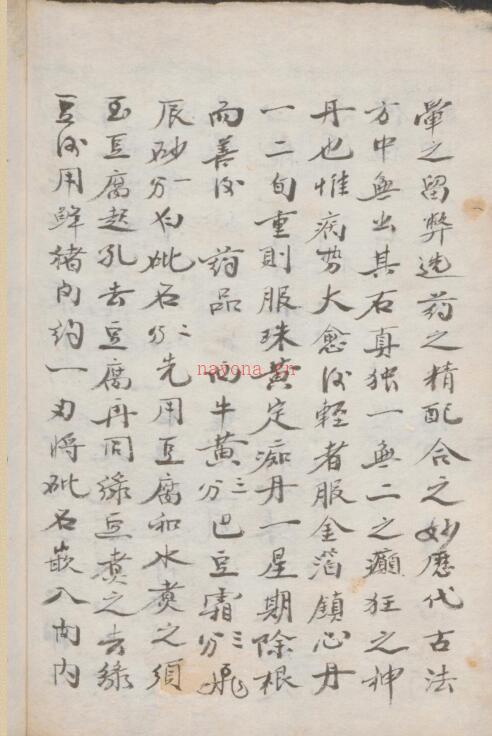 犖之留弊选药之精配合之妙歷代古法
方中無出其右真独一無二之癲狂之神
丹也惟病势大愈後輕者服金箔鎮心丹
一二旬重則服珠黄定痴丹一星期除根
而善後 药品 西牛黄三分巴豆霜三分飛
辰砂一分白砒石二分先用豆腐和水煑之須
至豆腐起孔去豆腐再同綠豆煑之去綠
豆後用鮮猪肉約一刃將砒石嵌入肉内
nayona.cn